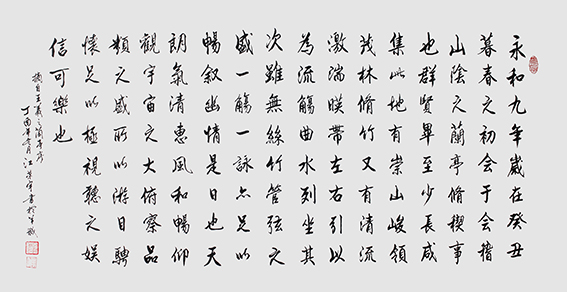 永和九年歲在癸丑
暮春之初會于會稽
山陰之蘭亭脩稧事
也群賢畢至少長咸
集此地有崇山峻領
茂林脩竹又有清流
激湍暎帶左右引以
為流觴曲水列坐其
次雖無絲竹管弦之
盛一觴一詠亦足以
暢叙幽情是日也天
朗氣清惠風和暢仰
觀宇宙之大俯察品
類之盛所以游目騁
懷足以極視聽之娱
信可樂也
摘自王羲之蘭亭序
丁酉年月江書於羊城